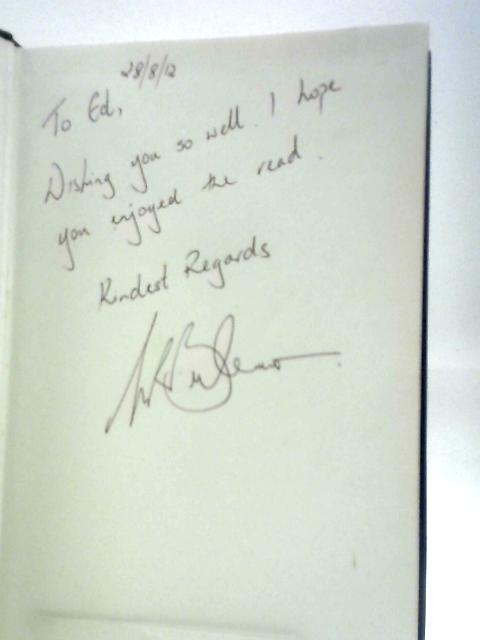 28/8/12
To Ed,
Wishing you so well. I hope
you enjoyed the read.
Kindest Regards